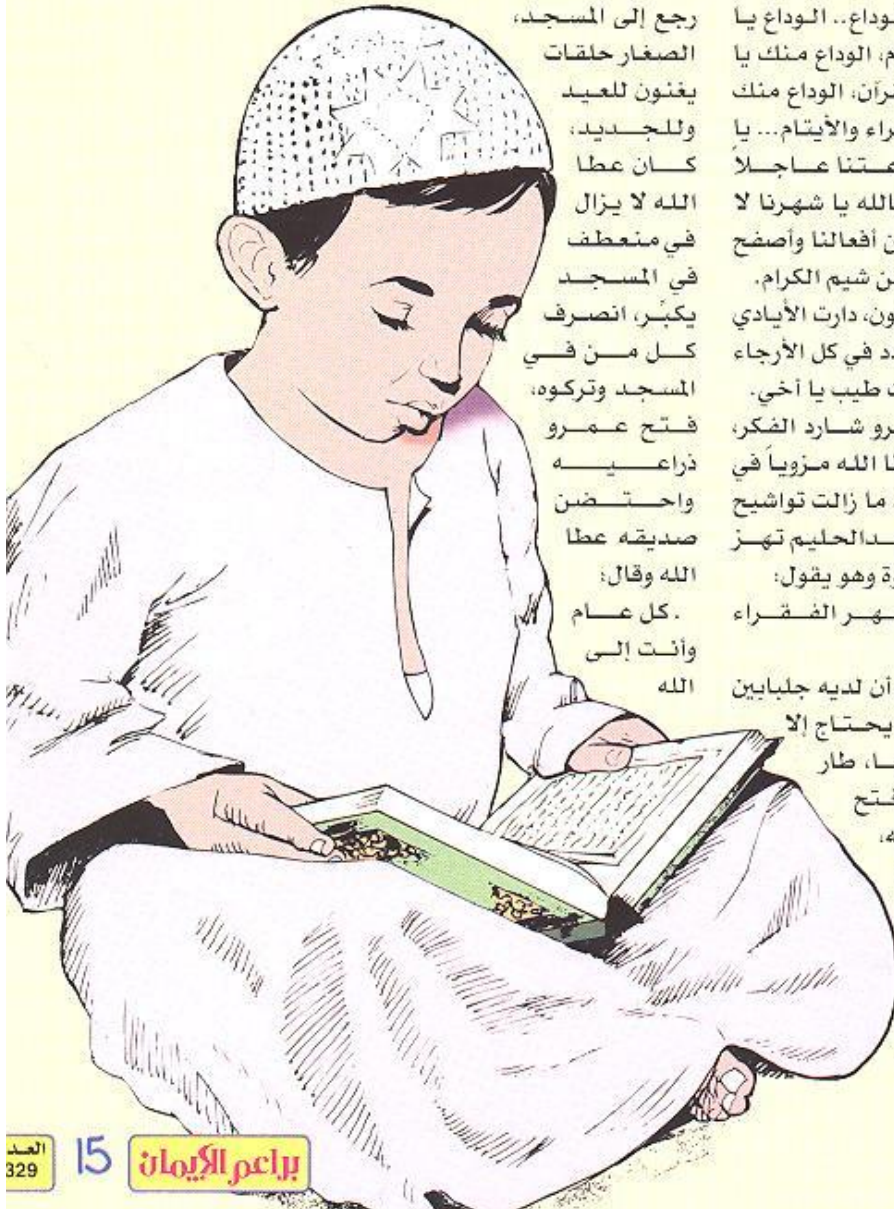 وداع.. الوداع يا
م، الوداع منك يا
رآن، الوداع منك
راء والأيتام... يا
عتنا عاجلاً
الله يا شهرنا لا
ن أفعالنا وأصفح
ن شيم الكرام.
ون، دارت الأيادي
دد في كل الأرجاء
ت طيب يا أخي.
رو شارد الفكر،
ا الله مزوياً في
ما زالت تواشيح
دالحليم تهز
ة وهو يقول:
هر الفقراء
أن لديه جلبابين
يحتاج إلا
ا، طار
فتح
ه،
رجع إلى المسجد،
الصغار حلقات
يغنون للعيد
وللجديد،
كان عطا
الله لا يزال
في منعطف
في المسجد
يكبّر، انصرف
كل من في
المسجد وتركوه،
فتح عمرو
ذراعيه
واحتضن
صديقه عطا
الله وقال:
. كل عام
وأنت إلى
الله
براعم الإيمان
15
العد
329